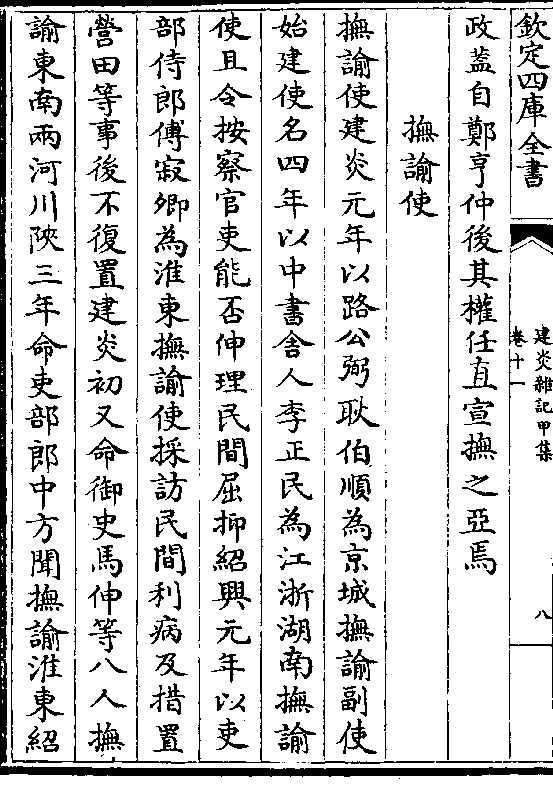 欽定四庫全書
建炎雜記甲集
卷十一
八
政蓋自鄭亨仲後其權任直宣撫之亞焉
撫諭使
撫諭使建炎元年以路公弼耿伯順為京城撫諭副使
始建使名四年以中書舎人李正民為江浙湖南撫諭
使且令按察官吏能否伸理民間屈抑紹興元年以吏
部侍郎傅寂卿為淮東撫諭使採訪民間利病及措置
營田等事後不復置建炎初又命御史馬伸等八人撫
諭東南兩河川陜三年命吏部郎中方聞撫諭淮東紹